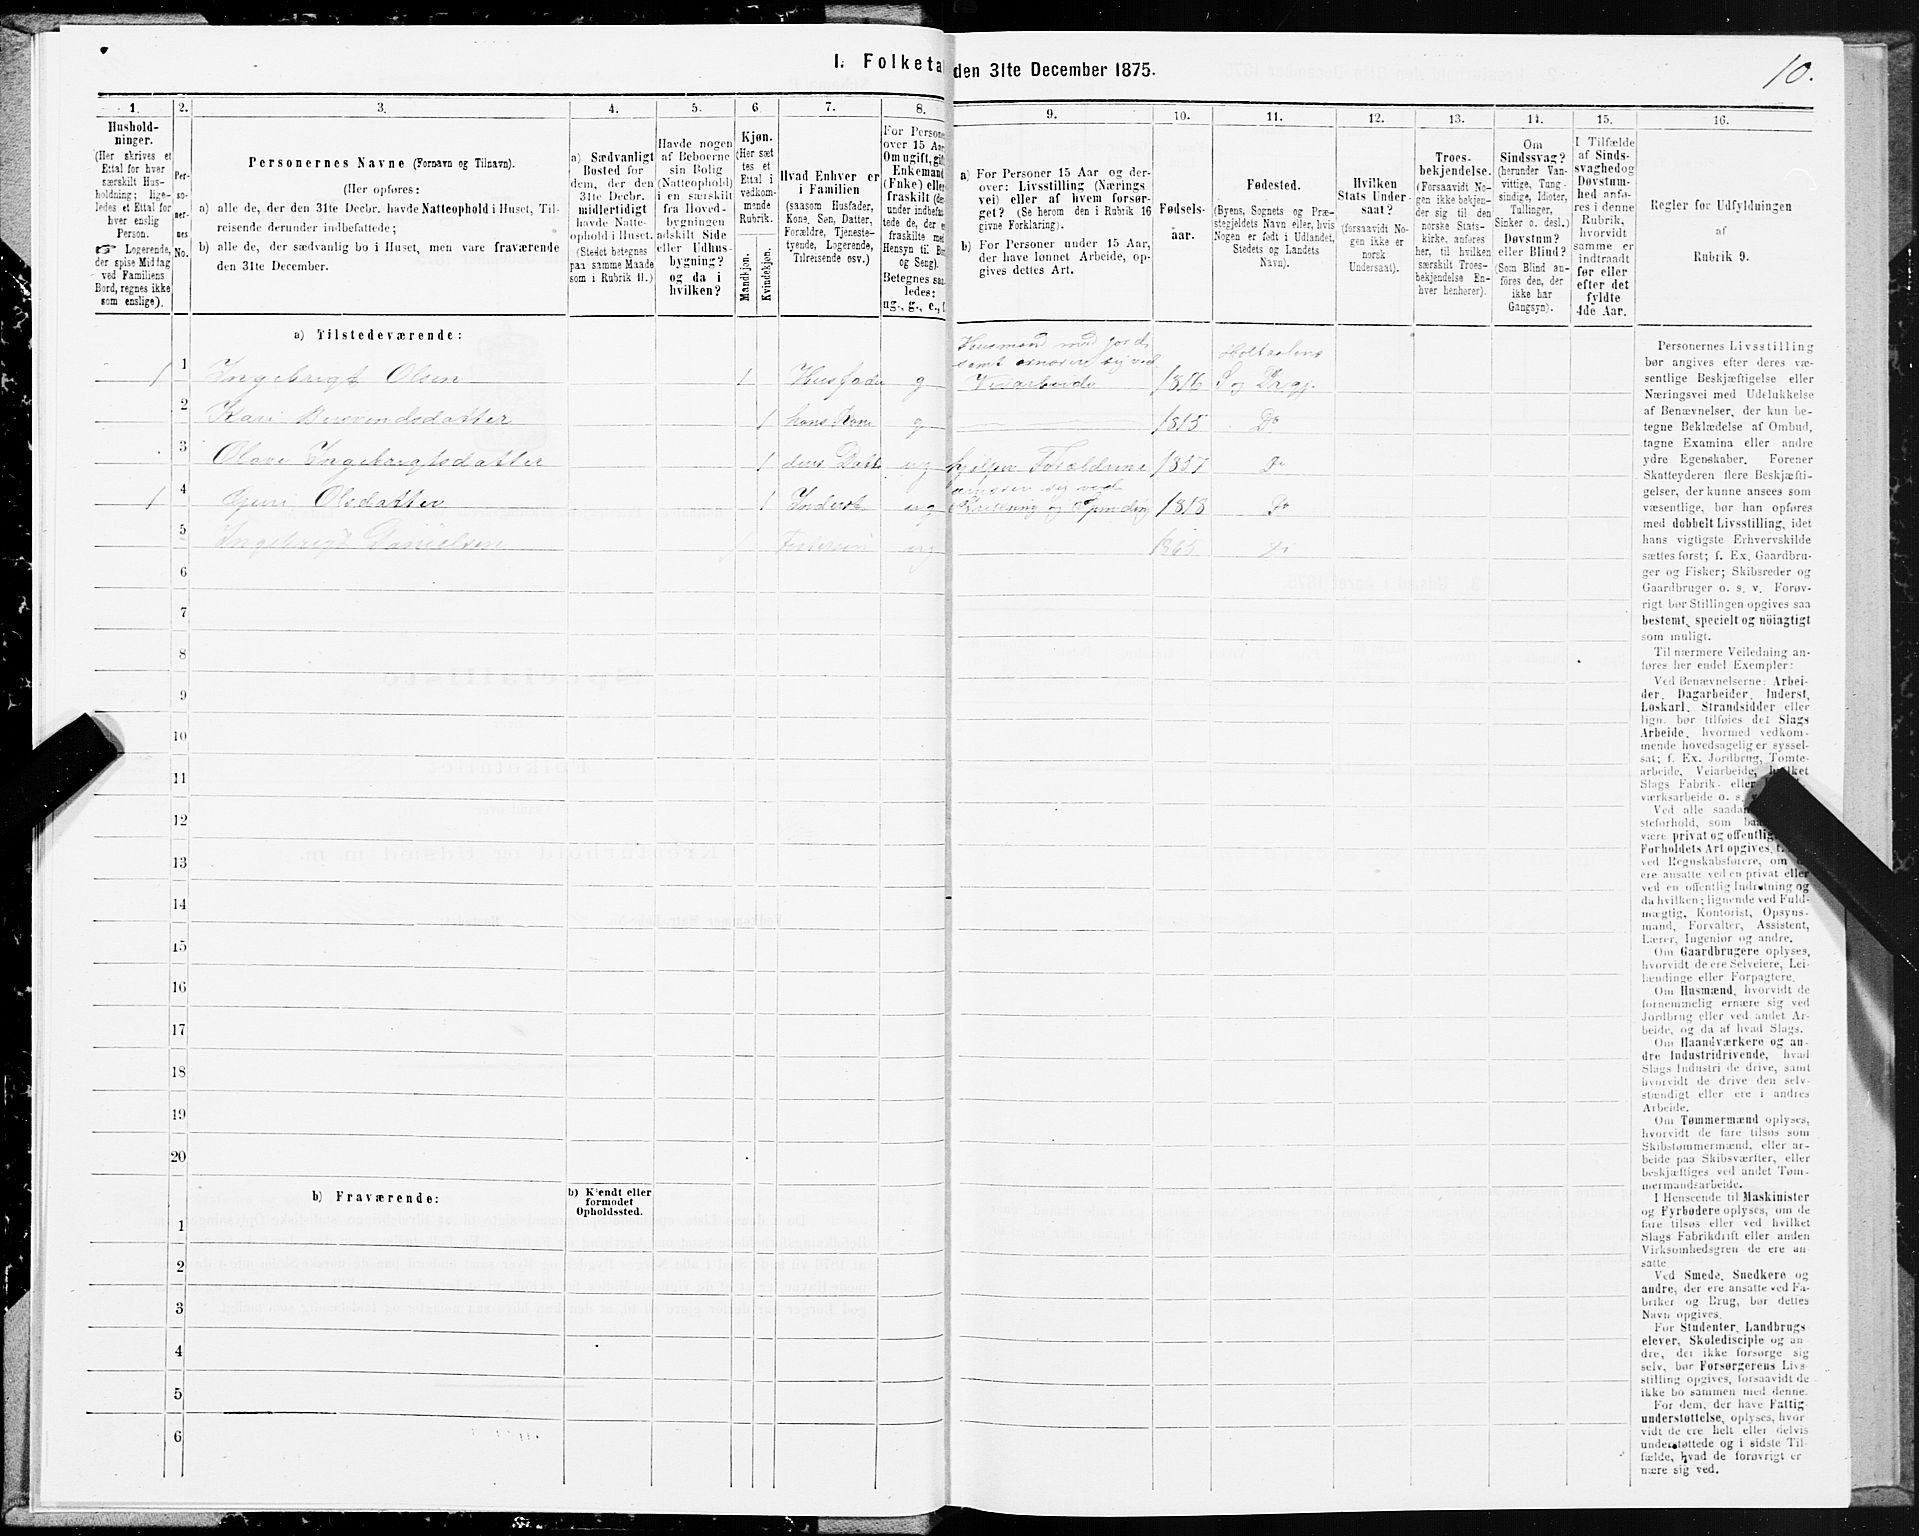 I. Folketal den 31te December 1875.
10.
1.
2.
3.
4.
5.
6.
7.
8.
9.
10.
11.
12.
13.
14.
15.
16.
Hushold-
ninger.
(Her skrives et
Ettal for hver
særskilt Hus-
holdning; lige-
ledes et Ettal for
hver enslig
Person.
☞ Logerende,
der spise Middag
ved Familiens
Bord, regnes ikke
som enslige).
Per-
so-
ner-
nes
No.
Personernes Navne (Fornavn og Tilnavn).
(Her opføres:
a) alle de, der den 31te Decbr. havde Natteophold i Huset, Til-
reisende derunder indbefattede;
b) alle de, der sædvanlig bo i Huset, men vare fraværende
den 31te December.
a) Sædvanligt
Bosted for
dem, der den
31te Decbr.
midlertidigt
havde Natte-
ophold i Huset.
(Stedet betegnes
paa samme Maade
som i Rubrik 11.)
Havde nogen
af Beboerne
sin Bolig
(Natteophold)
i en særskilt
fra Hoved-
bygningen
adskilt Side
eller Udhus-
bygning?
og da i
hvilken?
Kjøn.
(Her sæt
tes et
Ettal i
vedkom-
mende
Rubrik.
Mandkjøn.
Kvindekjøn.
Hvad Enhver er
i Familien
(saasom Husfader,
Kone, Søn, Datter,
Forældre, Tjeneste-
tyende, Logerende,
Tilreisende osv.)
For Persone
over 15 Aar
Om ugift, gift
Enkemand
(Enke) eller
fraskilt (der
under indbefat
tede de, der e
fraskilte med
Hensyn til Bo
og Seng).
Betegnes saa
ledes:
ug., g., e.,
a) For Personer 15 Aar og der-
over: Livsstilling (Nærings
vei) eller af hvem forsør-
get? (Se herom den i Rubrik 16
givne Forklaring).
b) For Personer under 15 Aar,
der have lønnet Arbeide, op-
gives dettes Art.
Fødsels-
aar.
Fødested.
(Byens, Sognets og Præ-
stegjeldets Navn eller, hvis
Nogen er født i Udlandet,
Stedets og Landets
Navn).
Hvilken
Stats Under-
saat?
(forsaavidt No-
gen ikke er
norsk
Undersaat).
Troes-
bekjendelse.
(Forsaavidt No-
gen ikke bekjen-
der sig til den
norske Stats-
kirke, anføres
her, til hvilken
særskilt Troes-
bekjendelse En-
hver henhører).
Om
Sindssvag?
(herunder Van-
vittige, Tung-
sindige, Idioter,
Tullinger,
Sinker o. desl.)
Døvstum?
eller Blind?
(Som Blind an-
føres den, der
ikke har
Gangsyn).
I Tilfælde
af Sinds-
svaghed og
Døvstum-
hed anfø-
res i denne
Rubrik,
hvorvidt
samme er
indtraadt
før eller
efter det
fyldte
4de Aar.
Regler for Udfyldningen
af
Rubrik 9.
a) Tilstedeværende:
Husmand med jord
samt ernærer sig ved
Holtaalens
1 1 Ingebrigt Olsen 1 Husfader g Veiarbeide 1816 S og Prgj.
2 Kari Bersvendsdatter 1 hans Kone g 1815 Do
3 Olave Ingebrigtsdatter 1 deres Datt ug hjelper Forældrene 1857 Do
ernærer sig ved
1 4 Guri Olsdatter 1 Inderst ug Strikning og Spinding 1818 Do
5 Ingebrigt Danielsen 1 ug 1865 Do
6
7
8
9
10
11
12
13
14
15
16
17
18
19
20
b) Fraværende:
b) Kjendt eller
formodet
Opholdssted.
1
2
3
4
5
6
Personernes Livsstilling
bør angives efter deres væ-
sentlige Beskjæftigelse eller
Næringsvei med Udelukkelse
af Benævnelser, der kun be-
tegne Beklædelse af Ombud,
tagne Examina eller andre
ydre Egenskaber. Forener
Skatteyderen flere Beskjæfti-
gelser, der kunne ansees som
væsentlige, bør han opføres
med dobbelt Livsstilling, idet
hans vigtigste Erhvervskilde
sættes først; f. Ex. Gaardbru-
ger og Fisker; Skibsreder og
Gaardbruger o. s. v. Forøv-
rigt bør Stillingen opgives saa
bestemt, specielt og nöiagtigt
som muligt.
Til nærmere Veiledning an-
føres her endel Exempler:
Ved Benævnelserne: Arbei-
der, Dagarbeider, Inderst,
Løskarl, Strandsidder eller
lign. bør tilføies det Slags
Arbeide, hvormed vedkom-
mende hovedsagelig er syssel-
sat; f. Ex. Jordbrug, Tomte-
arbeide, Veiarbeide, hvilket
Slags Fabrik- eller
værksarbeide o. s.
Ved alle saadan
steforhold, som
være privat og offentlig
Forholdets Art opgives,
ved Regnskabsførere, om
ere ansatte ved en privat eller
ved en offentlig Indretning og
da hvilken; lignende ved Fuld-
mægtig, Kontorist, Opsyns-
mand, Forvalter, Assistent,
Lærer, Ingeniør og andre.
Om Gaardbrugere oplyses,
hvorvidt de ere Selveiere, Lei-
lændinge eller Forpagtere.
Om Husmænd, hvorvidt de
fornemmelig ernære sig ved
Jordbrug eller ved andet Ar-
beide, og da af hvad Slags.
Om Haandværkere og an-
dre Industridrivende, hvad
Slags Industri de drive, samt
hvorvidt de drive den selv-
stændigt eller ere i andres
Arbeide.
Om Tømmermænd oplyses,
hvorvidt de fare tilsøs som
Skibstømmermænd, eller ar-
beide paa Skibsværfter, eller
beskjæftiges ved andet Tøm-
mermandsarbeide.
I Henseende til Maskinister
og Fyrbødere oplyses, om de
fare tilsøs eller ved hvilket
Slags Fabrikdrift eller anden
Virksomhedsgren de ere an-
satte
Ved Smede, Snedkere og
andre, der ere ansatte ved Fa-
briker og Brug, bør dettes
Navn opgives.
For Studenter, Landbrugs-
elever, Skoledisciple og an-
dre, der ikke forsørge sig
selv, bør Forsørgerens Livs-
stilling opgives, forsaavidt de
ikke bo sammen med denne.
For dem, der have Fattig-
understøttelse, oplyses, hvor
vidt de ere helt eller delvis
understøttede og i sidste Til-
fælde, hvad de forøvrigt er
nære sig ved.